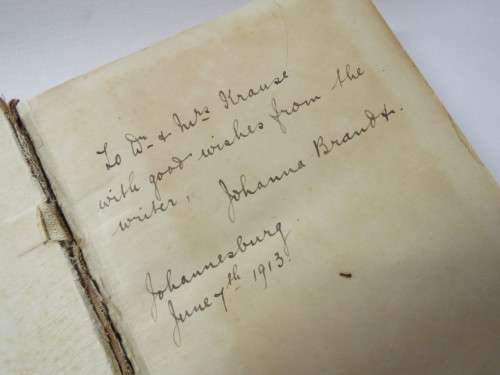 To Dr. & Mrs Krause
with good wishes from the
writer, Johanna Brandt.
Johannesburg.
June 7th 1913.